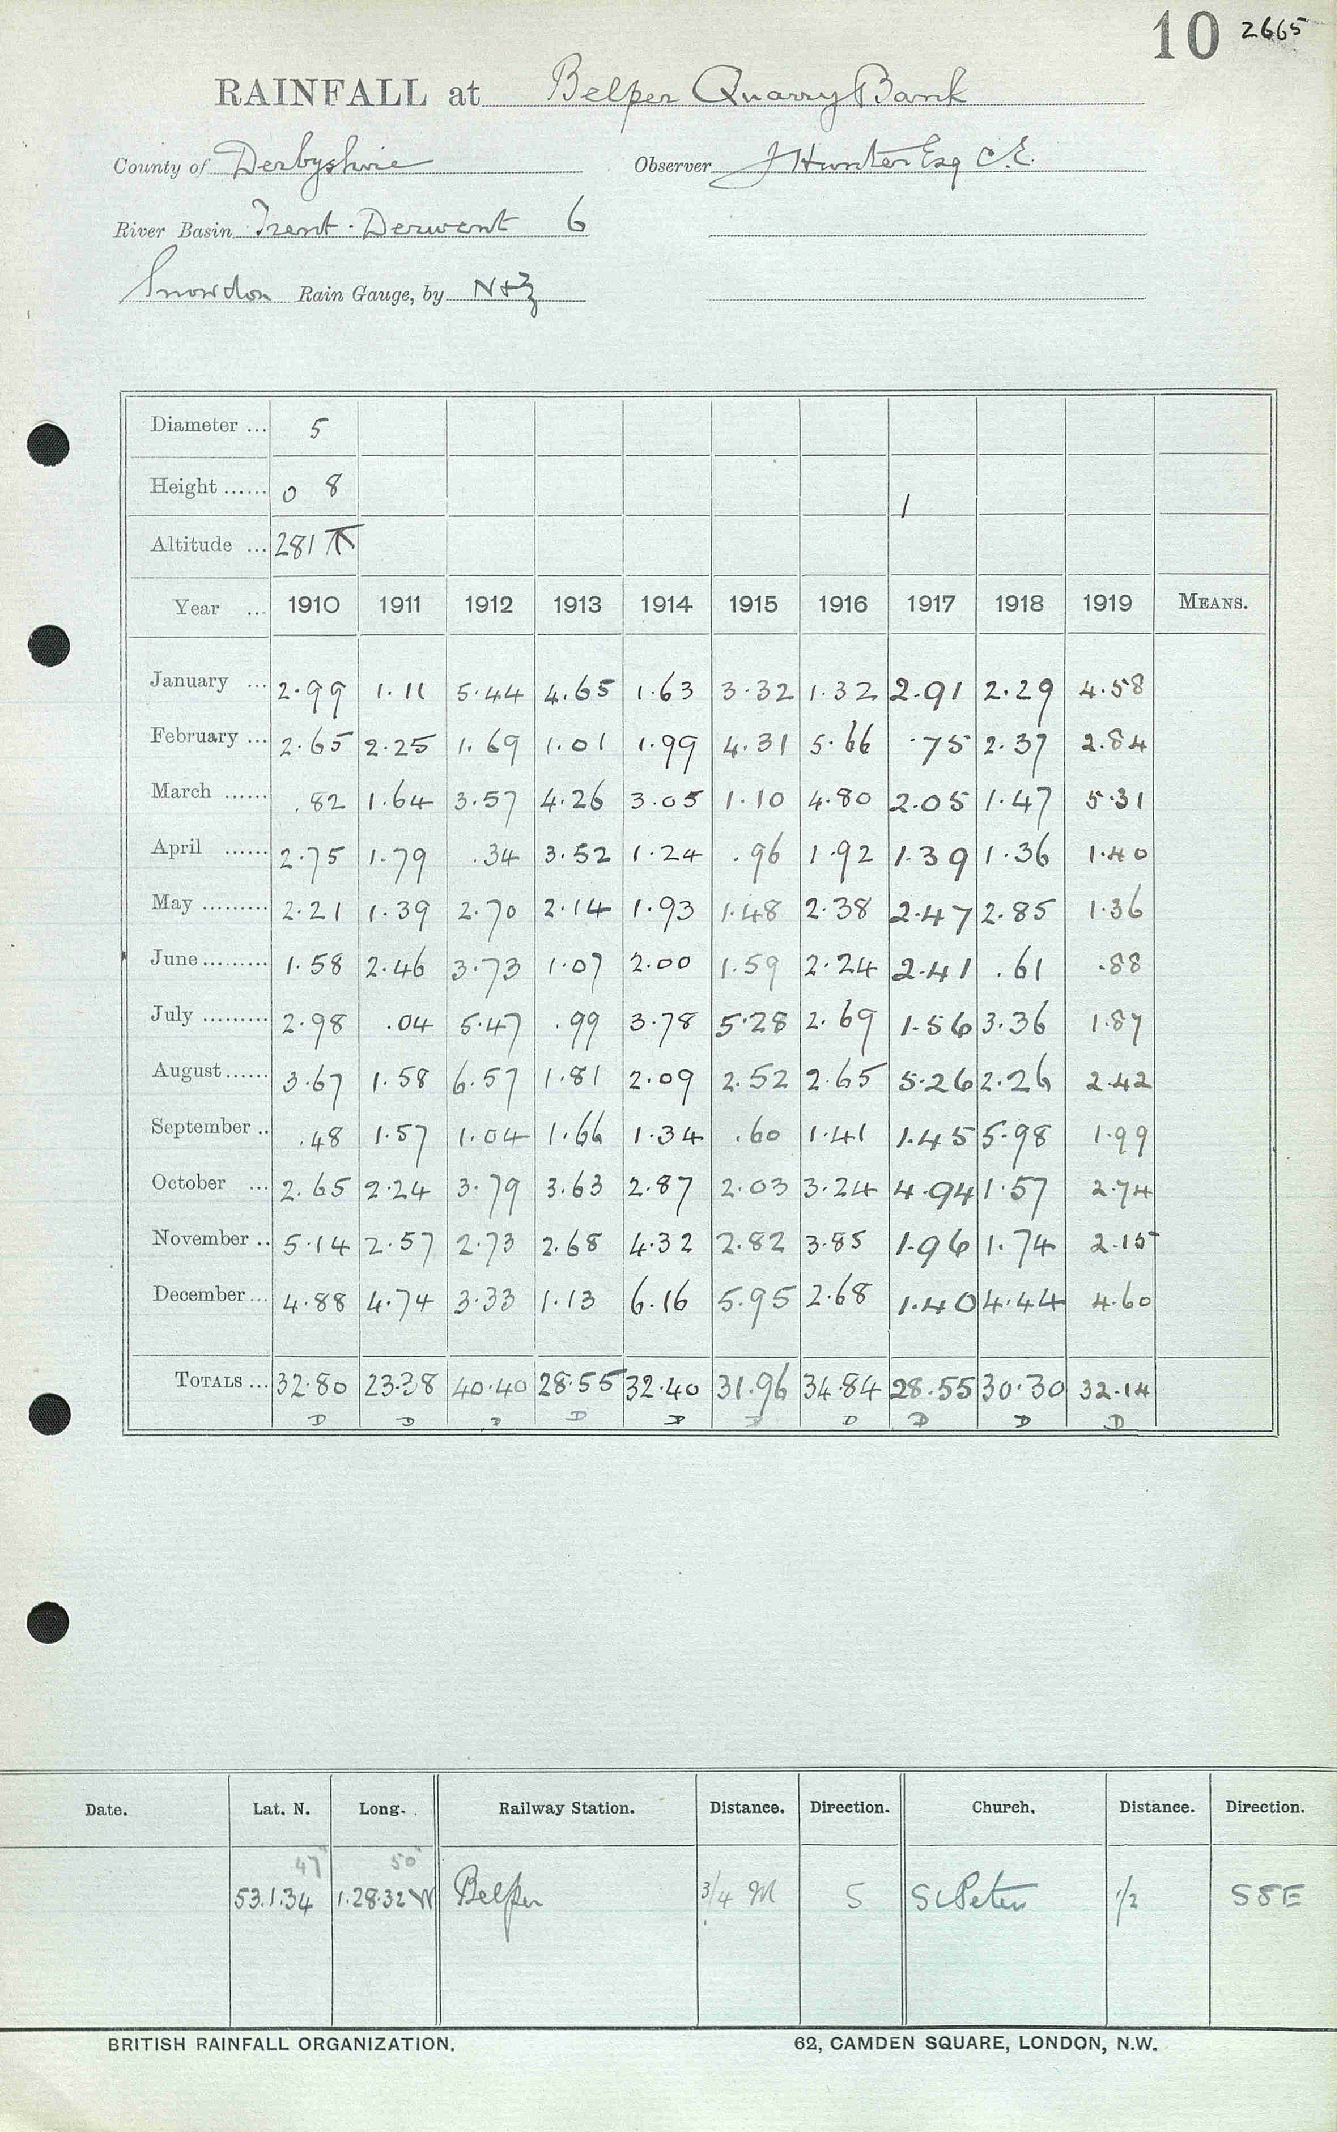 10 2665
RAINFALL at Belper Quarry Bank
County of Derbyshire Observer J Hunter Esq C.E.
River Basin Trent. Derwent 6
Snowdon Rain Gauge, by N+Z
Diameter ... 5
Height ...... 0 8 1
Altitude ... 281
Year ... 1910 1911 1912 1913 1914 1915 1916 1917 1918 1919 MEANS.
January ... 2.99 1.11 5.44 4.65 1.63 3.32 1.32 2.91 2.29 4.58
February ... 2.65 2.25 1.69 1.01 1.99 4.31 5.66 .75 2.37 2.84
March ...... .82 1.64 3.57 4.26 3.05 1.10 4.80 2.05 1.47 5.31
April ...... 2.75 1.79 .34 3.52 1.24 .96 1.92 1.39 1.36 1.40
May ......... 2.21 1.39 2.70 2.14 1.93 1.48 2.38 2.47 2.85 1.36
June ......... 1.58 2.46 3.73 1.07 2.00 1.59 2.24 2.41 .61 .88
July ......... 2.98 .04 5.47 .99 3.78 5.28 2.69 1.56 3.36 1.87
August ...... 3.67 1.58 6.57 1.81 2.09 2.52 2.65 5.26 2.26 2.42
September .. .48 1.57 1.04 1.66 1.34 .60 1.41 1.45 5.98 1.99
October ... 2.65 2.24 3.79 3.63 2.87 2.03 3.24 4.94 1.57 2.74
November .. 5.14 2.57 2.73 2.68 4.32 2.82 3.85 1.96 1.74 2.15
December ... 4.88 4.74 3.33 1.13 6.16 5.95 2.68 1.40 4.44 4.60
TOTALS ... 32.80 23.38 40.40 28.55 32.40 31.96 34.84 28.55 30.30 32.14
D D D D D D D D D D
Date. Lat. N. Long. Railway Station. Distance. Direction. Church. Distance. Direction.
47" 50"
53.1.34 1.28.32 W Belper 3/4 M S St Peter 1/2 SSE
BRITISH RAINFALL ORGANIZATION. 62, CAMDEN SQUARE, LONDON, N.W.